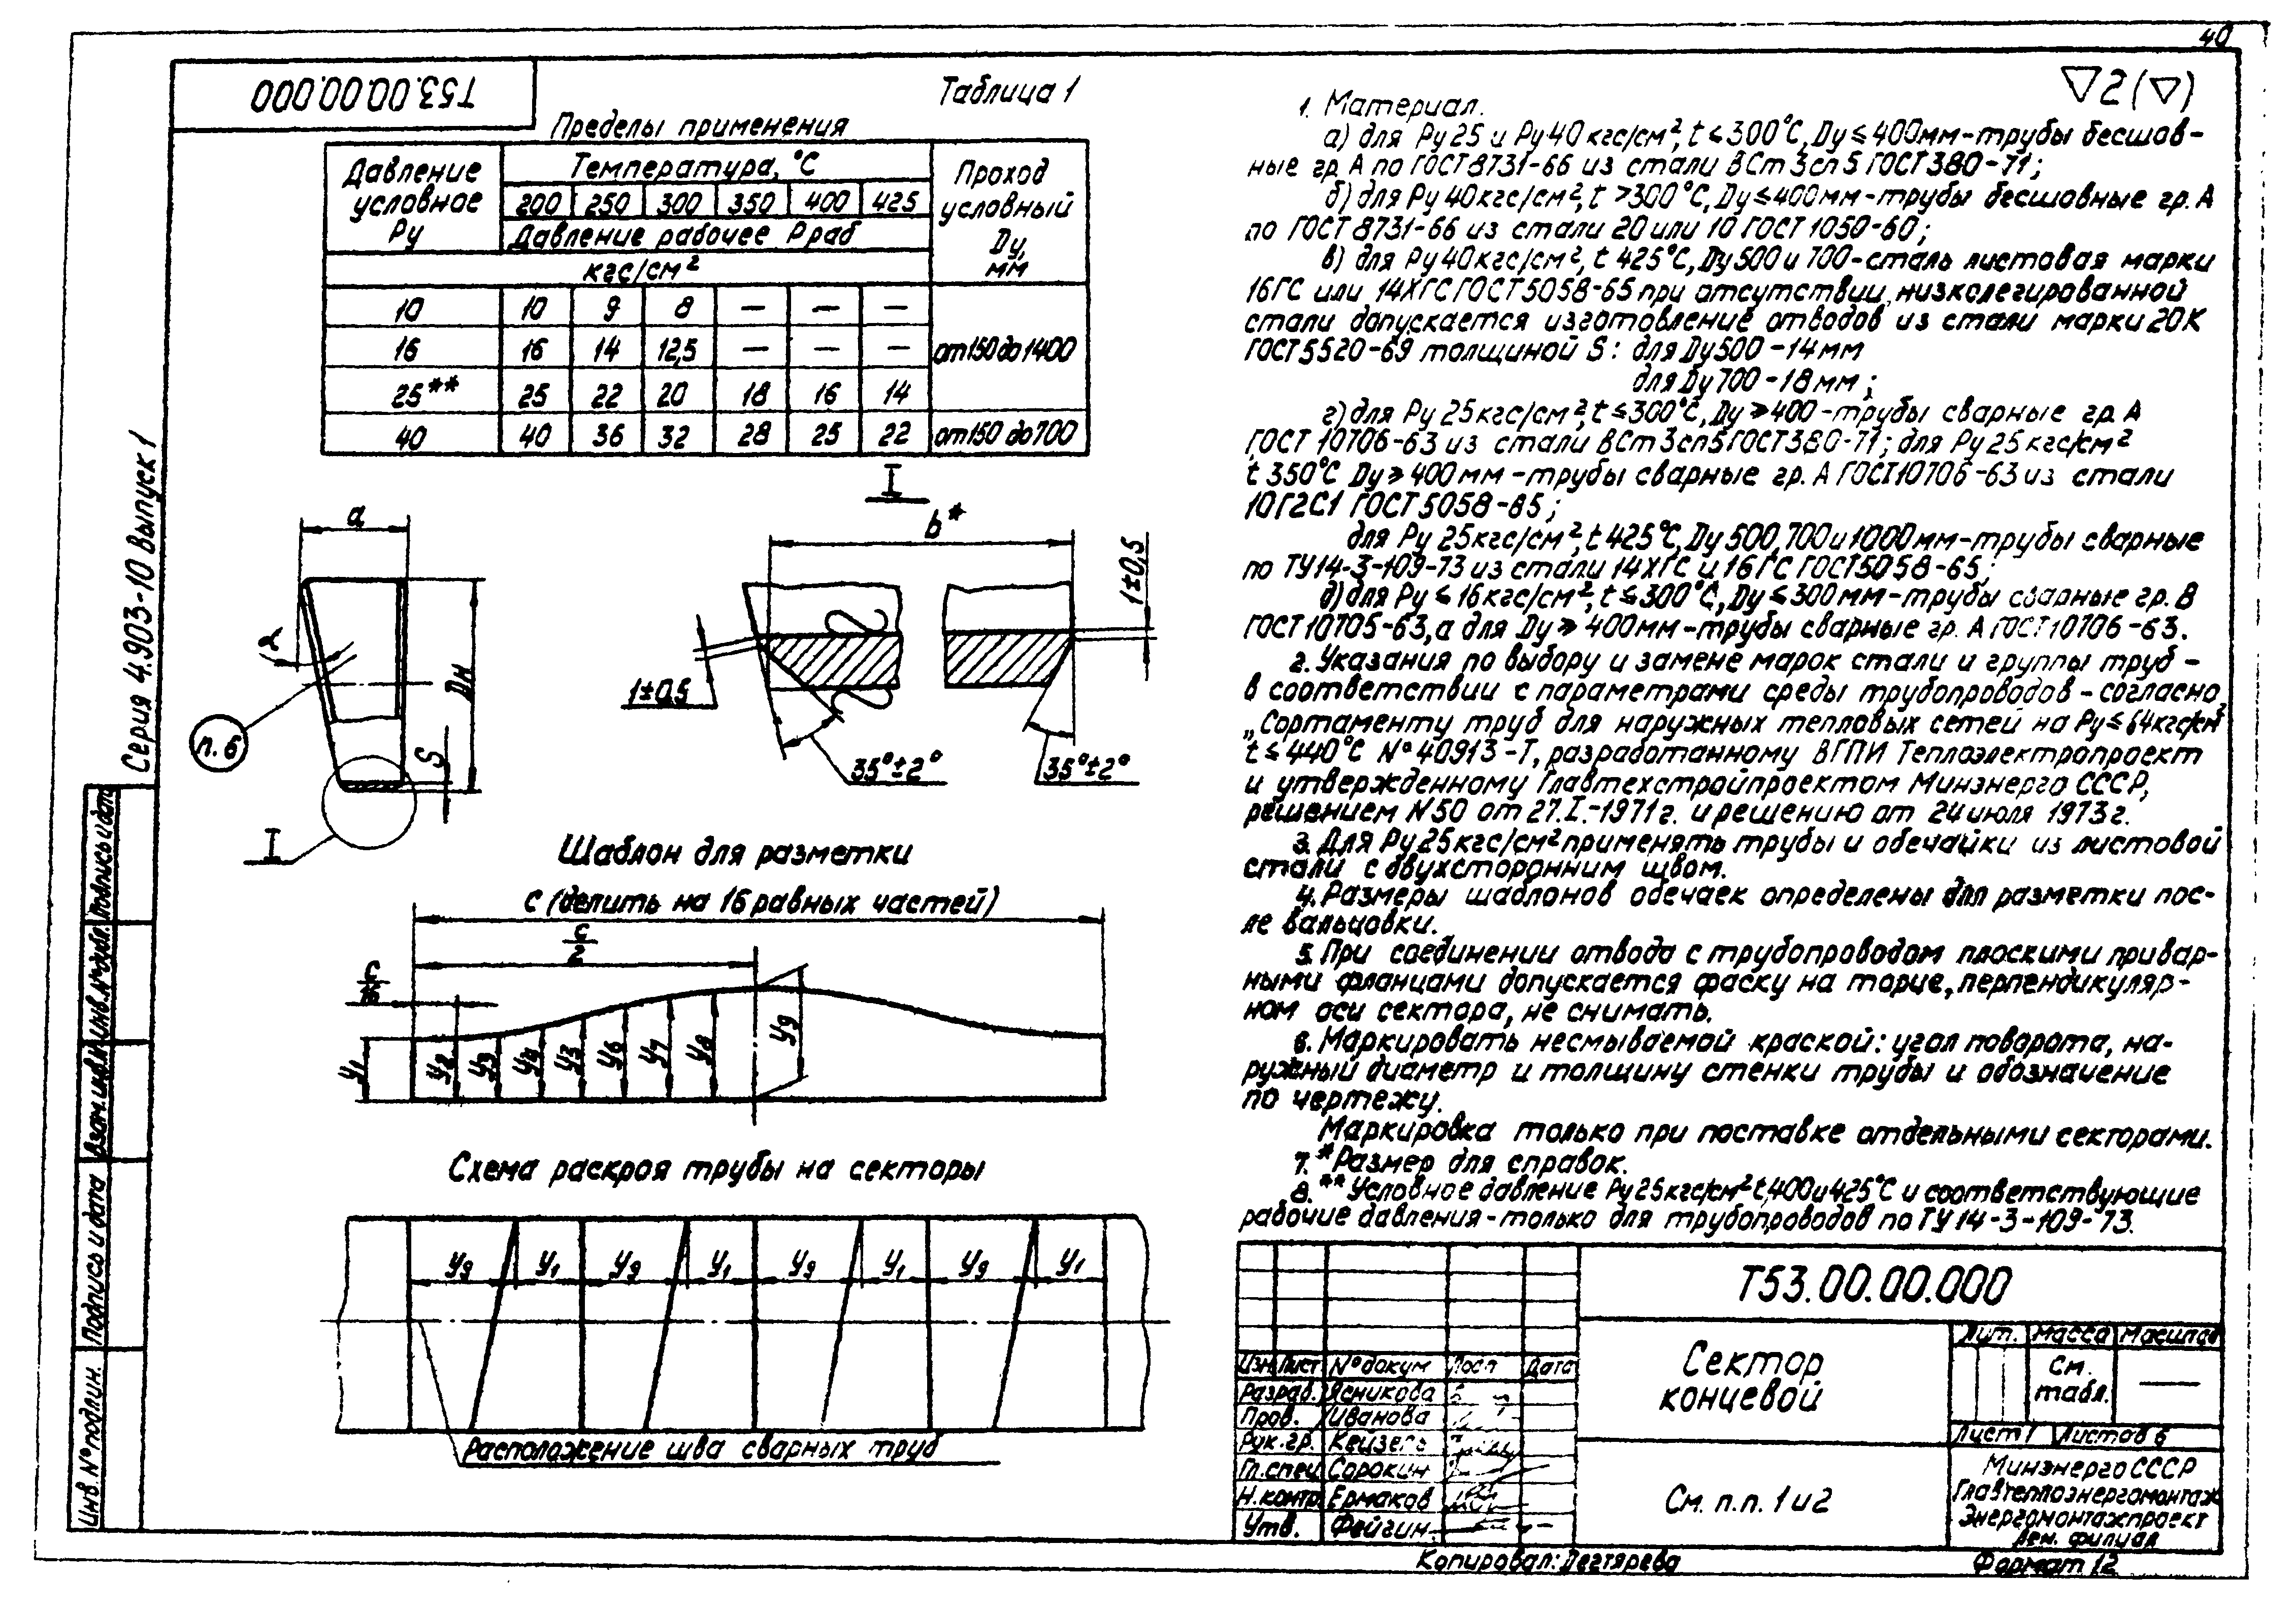 40
Т53.00.00.000
Таблица 1
Пределы применения
Давление условное Ру
Температура, °С
Проход условный Ду, мм
200 250 300 350 400 425
Давление рабочее Рраб
кгс/см²
10 10 9 8 — — —
16 16 14 12,5 — — —
от 150 до 1400
25** 25 22 20 18 16 14
40 40 36 32 28 25 22 от 150 до 700
▽2(▽)
1. Материал.
а) для Ру 25 и Ру 40 кгс/см², t ≤ 300°С, Ду ≤ 400мм-трубы бесшов-
ные гр. А по ГОСТ 8731-66 из стали ВСт 3сп 5 ГОСТ 380-71;
б) для Ру 40кгс/см², t >300°С, Ду ≤ 400мм-трубы бесшовные гр. А
по ГОСТ 8731-66 из стали 20 или 10 ГОСТ 1050-60;
в) для Ру 40кгс/см², t 425°С, Ду 500 и 700-сталь листовая марки
16ГС или 14ХГС ГОСТ 5058-65 при отсутствии низколегированной
стали допускается изготовление отводов из стали марки 20К
ГОСТ 5520-69 толщиной S: для Ду 500 -14 мм
для Ду 700 -18 мм;
г) для Ру 25кгс/см², t ≤ 300°С, Ду ≥ 400-трубы сварные гр. А
ГОСТ 10706-63 из стали ВСт 3сп5 ГОСТ 380-71; для Ру 25 кгс/см²
t 350°С Ду ≥ 400 мм -трубы сварные гр. А ГОСТ 10706-63 из стали
10Г2С1 ГОСТ 5058-65;
для Ру 25кгс/см², t 425°С, Ду 500, 700 и 1000 мм-трубы сварные
по ТУ14-3-109-73 из стали 14ХГС и 16ГС ГОСТ 5058-65;
д) для Ру ≤ 16кгс/см², t ≤ 300°С, Ду ≤ 300мм-трубы сварные гр. В
ГОСТ 10705-63, а для Ду ≥ 400мм-трубы сварные гр. А ГОСТ 10706-63.
2. Указания по выбору и замене марок стали и группы труб -
в соответствии с параметрами среды трубопроводов - согласно
„Сортаменту труб для наружных тепловых сетей на Ру ≤ 64кгс/см²
t ≤ 440°С № 40913-Т, разработанному ВГПИ Теплоэлектропроект
и утвержденному Главтехстройпроектом Минэнерго СССР,
решением N50 от 27.I.-1971г. и решению от 24 июля 1973г.
3. Для Ру 25кгс/см² применять трубы и обечайки из листовой
стали с двухсторонним швом.
4. Размеры шаблонов обечаек определены для разметки пос-
ле вальцовки.
5. При соединении отвода с трубопроводом плоскими привар-
ными фланцами допускается фаску на торце, перпендикуляр-
ном оси сектора, не снимать.
6. Маркировать несмываемой краской: угол поворота, на-
ружный диаметр и толщину стенки трубы и обозначение
по чертежу.
Маркировка только при поставке отдельными секторами.
7. * Размер для справок.
8. ** Условное давление Ру 25кгс/см² t, 400 и 425°С и соответствующие
рабочие давления - только для трубопроводов по ТУ 14-3-109-73.
Серия 4.903-10 Выпуск 1
а
α
Дн
S
п. 6
I
I
b*
1±0,5
1±0,5
35°±2°
35°±2°
Шаблон для разметки
С (делить на 16 равных частей)
С/2
С/16
У1 У2 У3 У4 У5 У6 У7 У8 У9
Схема раскроя трубы на секторы
У9 У1 У9 У1 У9 У1 У9 У1
Расположение шва сварных труб
Инв. № подлин.
Подпись и дата
Взам. инв. №
Инв. № дубл.
Подпись и дата
Т53.00.00.000
Сектор
концевой
Лит. Масса Масштаб
См. табл. —
Лист 1 Листов 6
Изм Лист № докум Подп Дата
Разраб. Ясникова
Пров. Иванова
Рук. гр.
Гл. спец Сорокин
Н. контр Ермаков
Утв. Фейгин
См. п.п. 1 и 2
Минэнерго СССР
Главтеплоэнергомонтаж
Энергомонтажпроект
Лен. филиал
Копировал: Дегтярева
Формат 12